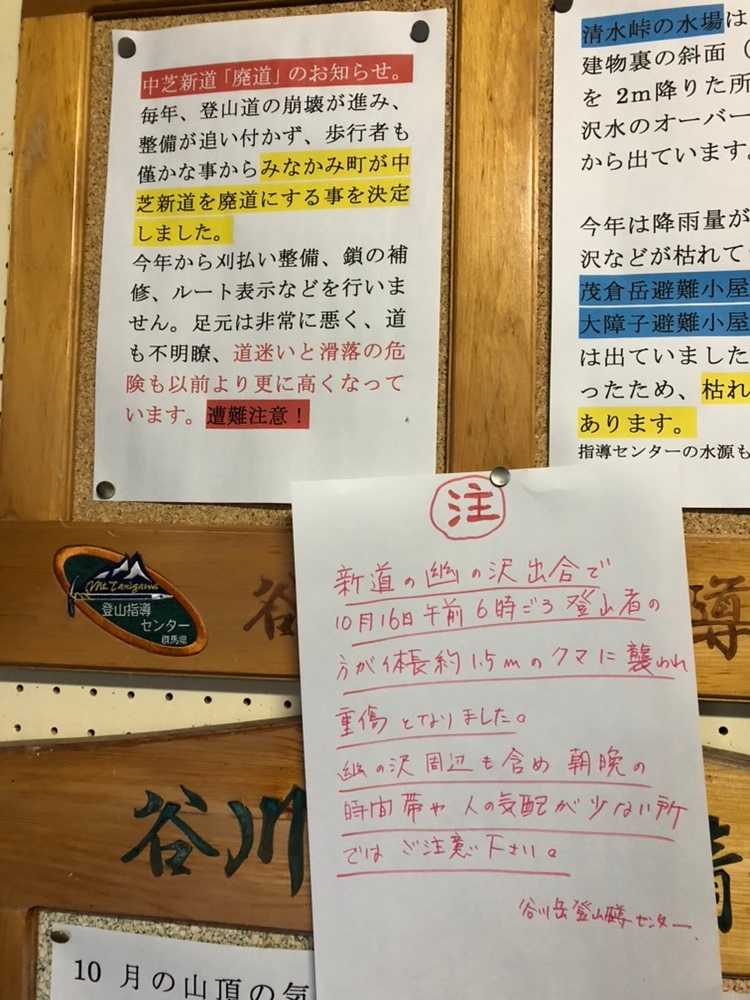 中芝新道「廃道」のお知らせ。
毎年、登山道の崩壊が進み、
整備が追い付かず、歩行者も
僅かな事からみなかみ町が中
芝新道を廃道にする事を決定
しました。
今年から刈払い整備、鎖の補
修、ルート表示などを行いま
せん。足元は非常に悪く、道
も不明瞭、道迷いと滑落の危
険も以前より更に高くなって
います。遭難注意！
清水峠の水場は
建物裏の斜面（
を 2m降りた所
沢水のオーバー
から出ています。
今年は降雨量が
沢などが枯れて
茂倉岳避難小屋
大障子避難小屋
は出ていました
ったため、枯れ
あります。
指導センターの水源も
注
新道の幽の沢出合で
10月16日午前6時ごろ登山者の
方が体長約1.5mのクマに襲われ
重傷となりました。
幽の沢周辺も含め朝晩の
時間帯や人の気配が少ない所
ではご注意下さい。
谷川岳登山指導センター
Mt.Tanigawa
登山指導
センター
群馬県
谷
導
谷川
晴
10 月の山頂の気